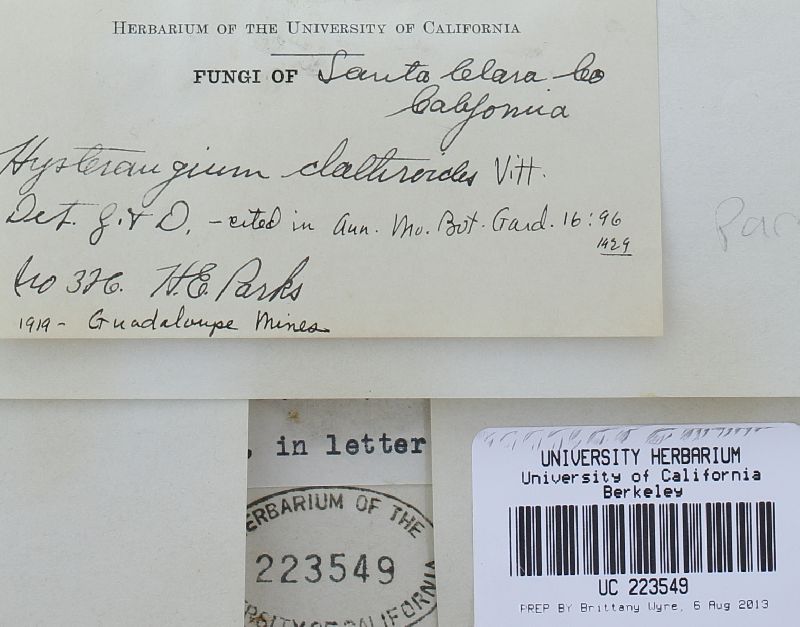 HERBARIUM OF THE UNIVERSITY OF CALIFORNIA
FUNGI OF Santa Clara Co
California
Hysterangium clathroides Vitt.
Det. Z. & D. - cited in Ann. Mo. Bot. Gard. 16:96
1929
No 326. H.E. Parks
1919 - Guadaloupe Mines
, in letter
ERBARIUM OF THE
223549
RSITY OF CALIFORNIA
UNIVERSITY HERBARIUM
University of California
Berkeley
UC 223549
PREP BY Brittany Wyre, 6 Aug 2013